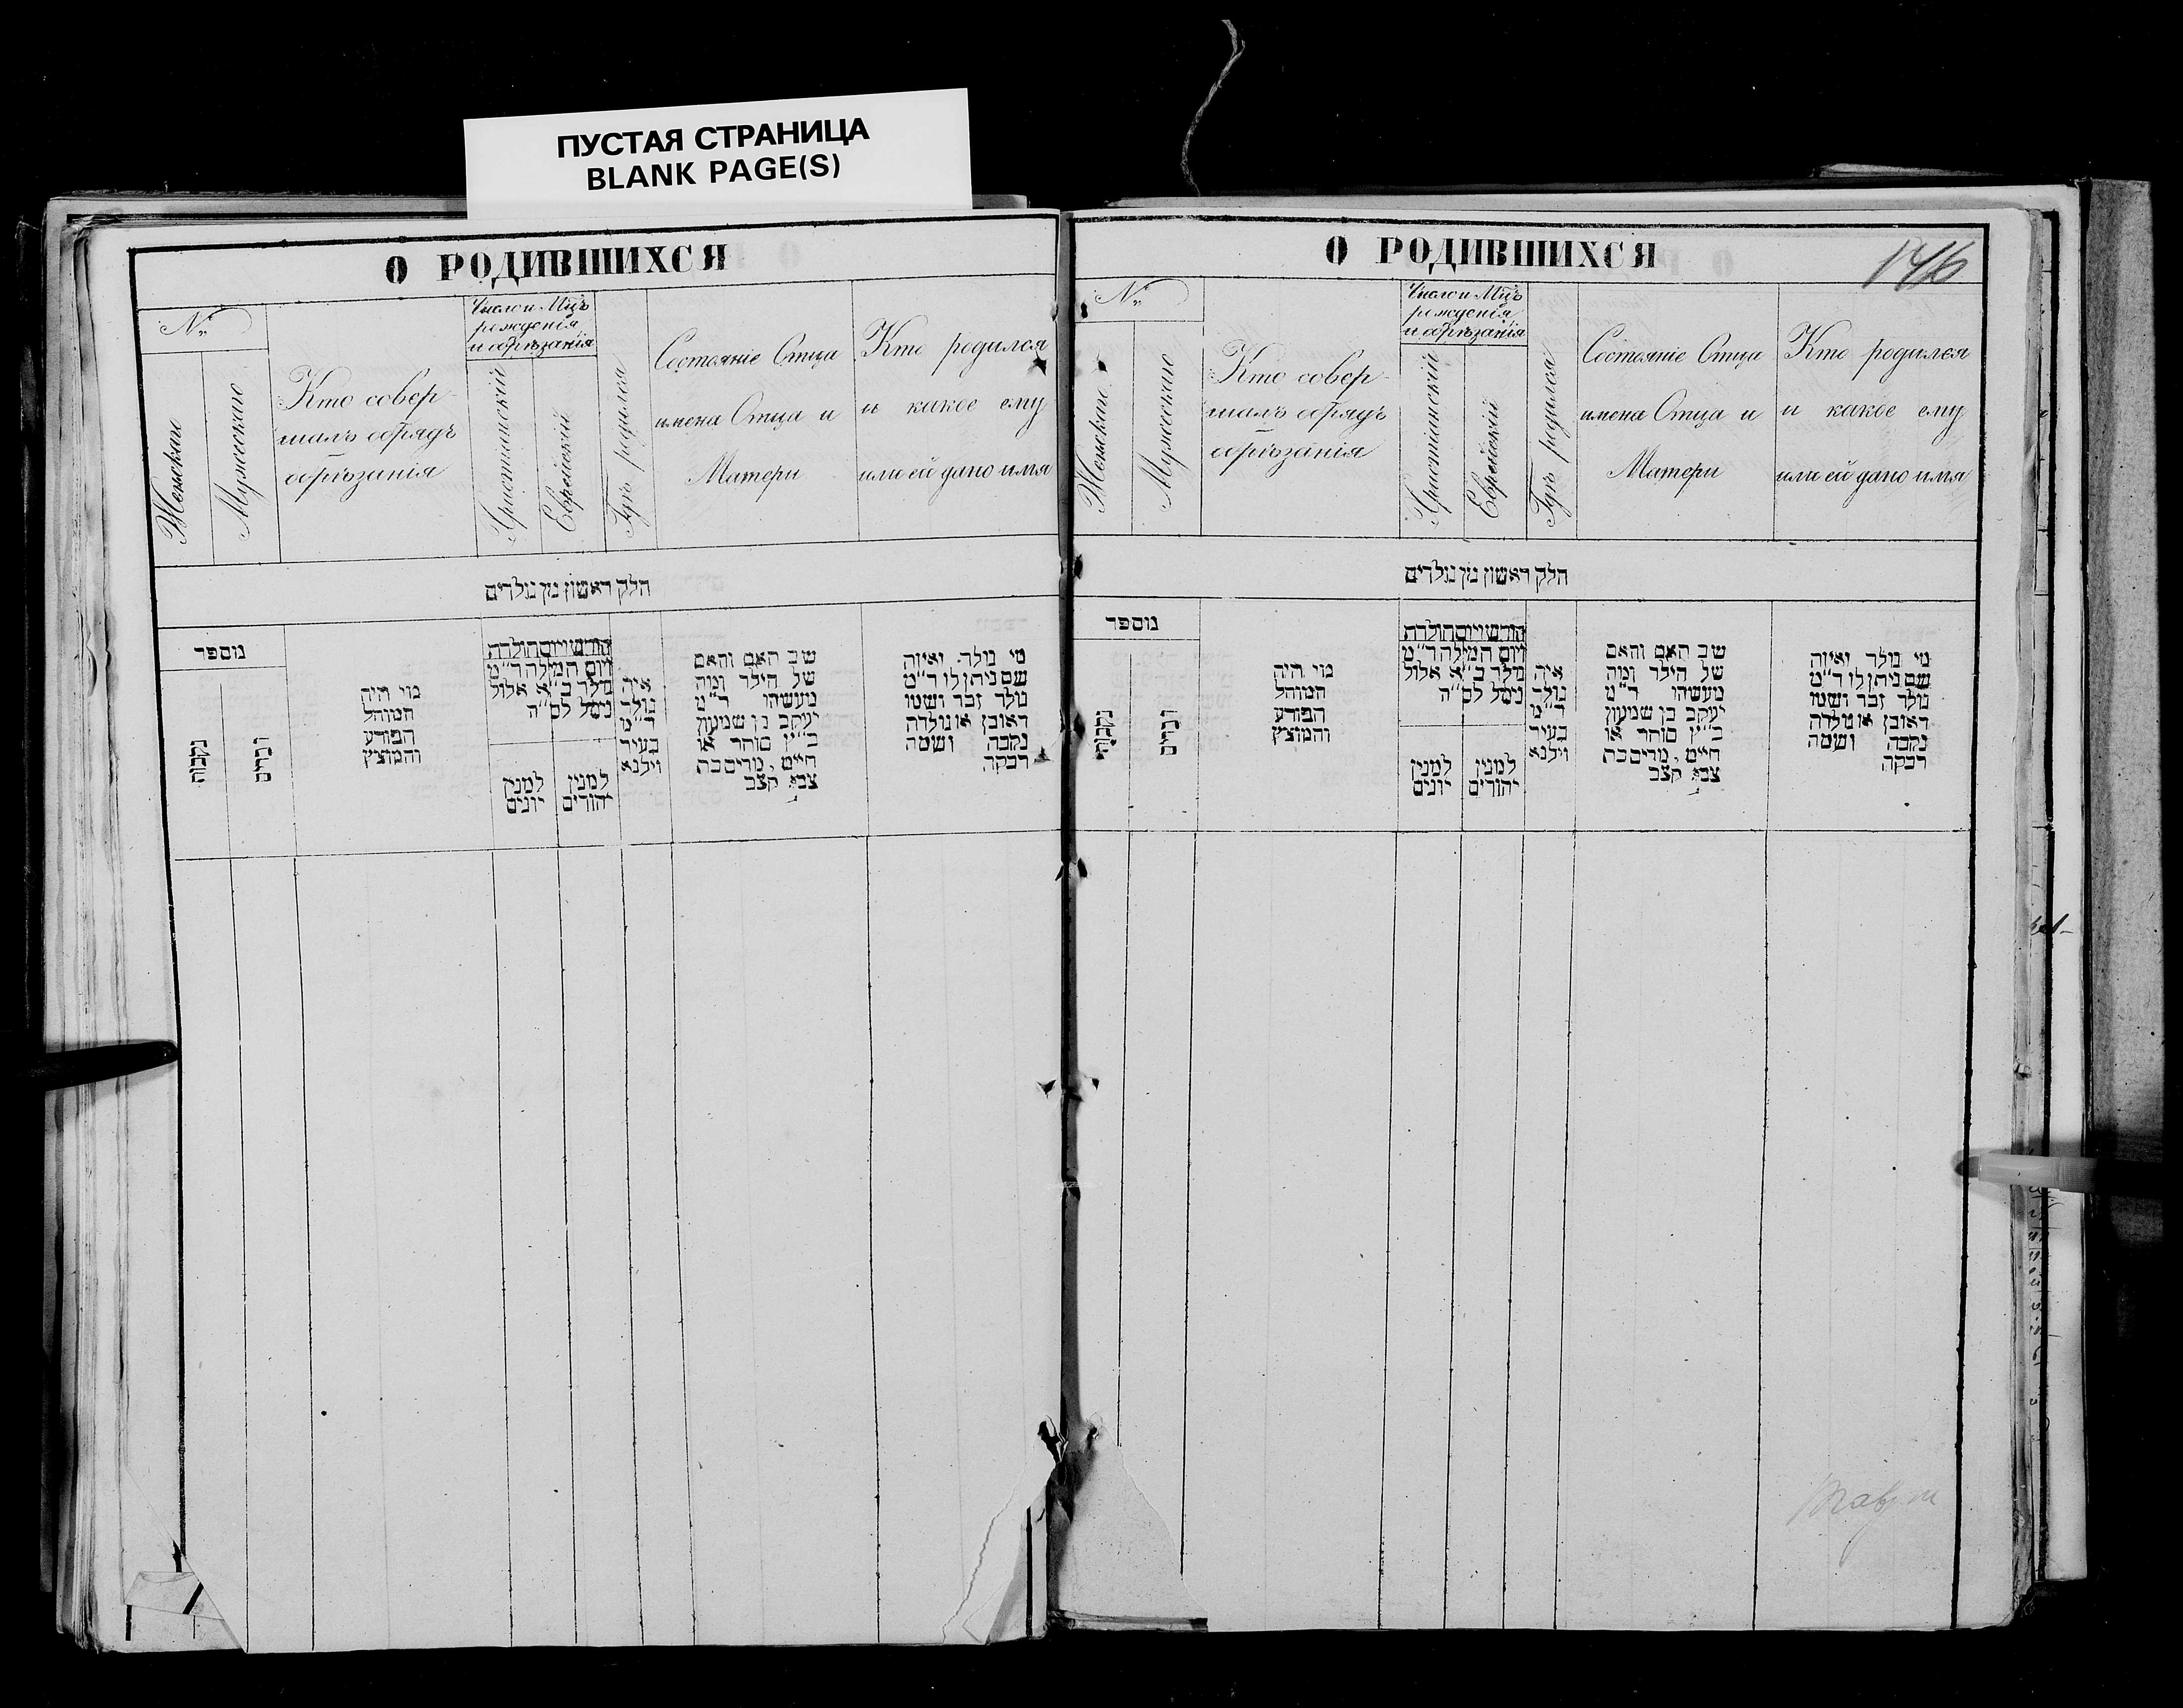 ПУСТАЯ СТРАНИЦА
BLANK PAGE(S)
О РОДИВШИХСЯ
№
Женскаго
Мужескаго
Кто совер-
шалъ обрядъ
обрѣзанія
Число и Мцъ
рожденія
и обрѣзанія
Христіанскій
Еврейскій
Гдѣ родился
Состояніе Отца
имена Отца и
Матери
Кто родился
и какое ему
или ей дано имя
חלק ראשון מן נולדים
מספר
נקבות
זכרים
מי היה
המוהל
הפורע
והמוצץ
חודש ויום הולדת
ויום המילה ד״מ
נולד ב״א אלול
ניסל לס״ה
למנין
יונים
למנין
יהודים
איה
נולד
ד״מ
בעיר
וילנא
שב האם והאם
של הילד ומה
מעשהו ד״מ
יעקב בן שמעון
כ״ץ סוחר או
חיים, מרים בת
צבי קצב
מי נולד ואיזה
שם ניתן לו ד״מ
נולד זכר ושמו
ראובן או נולדה
נקבה ושמה
רבקה
О РОДИВШИХСЯ
146
№
Женскаго
Мужескаго
Кто совер-
шалъ обрядъ
обрѣзанія
Число и Мцъ
рожденія
и обрѣзанія
Христіанскій
Еврейскій
Гдѣ родился
Состояніе Отца
имена Отца и
Матери
Кто родился
и какое ему
или ей дано имя
חלק ראשון מן נולדים
מספר
נקבות
זכרים
מי היה
המוהל
הפורע
והמוצץ
חודש ויום הולדת
ויום המילה ד״מ
נולד ב״א אלול
ניסל לס״ה
למנין
יונים
למנין
יהודים
איה
נולד
ד״מ
בעיר
וילנא
שב האם והאם
של הילד ומה
מעשהו ד״מ
יעקב בן שמעון
כ״ץ סוחר או
חיים, מרים בת
צבי קצב
מי נולד ואיזה
שם ניתן לו ד״מ
נולד זכר ושמו
ראובן או נולדה
נקבה ושמה
רבקה